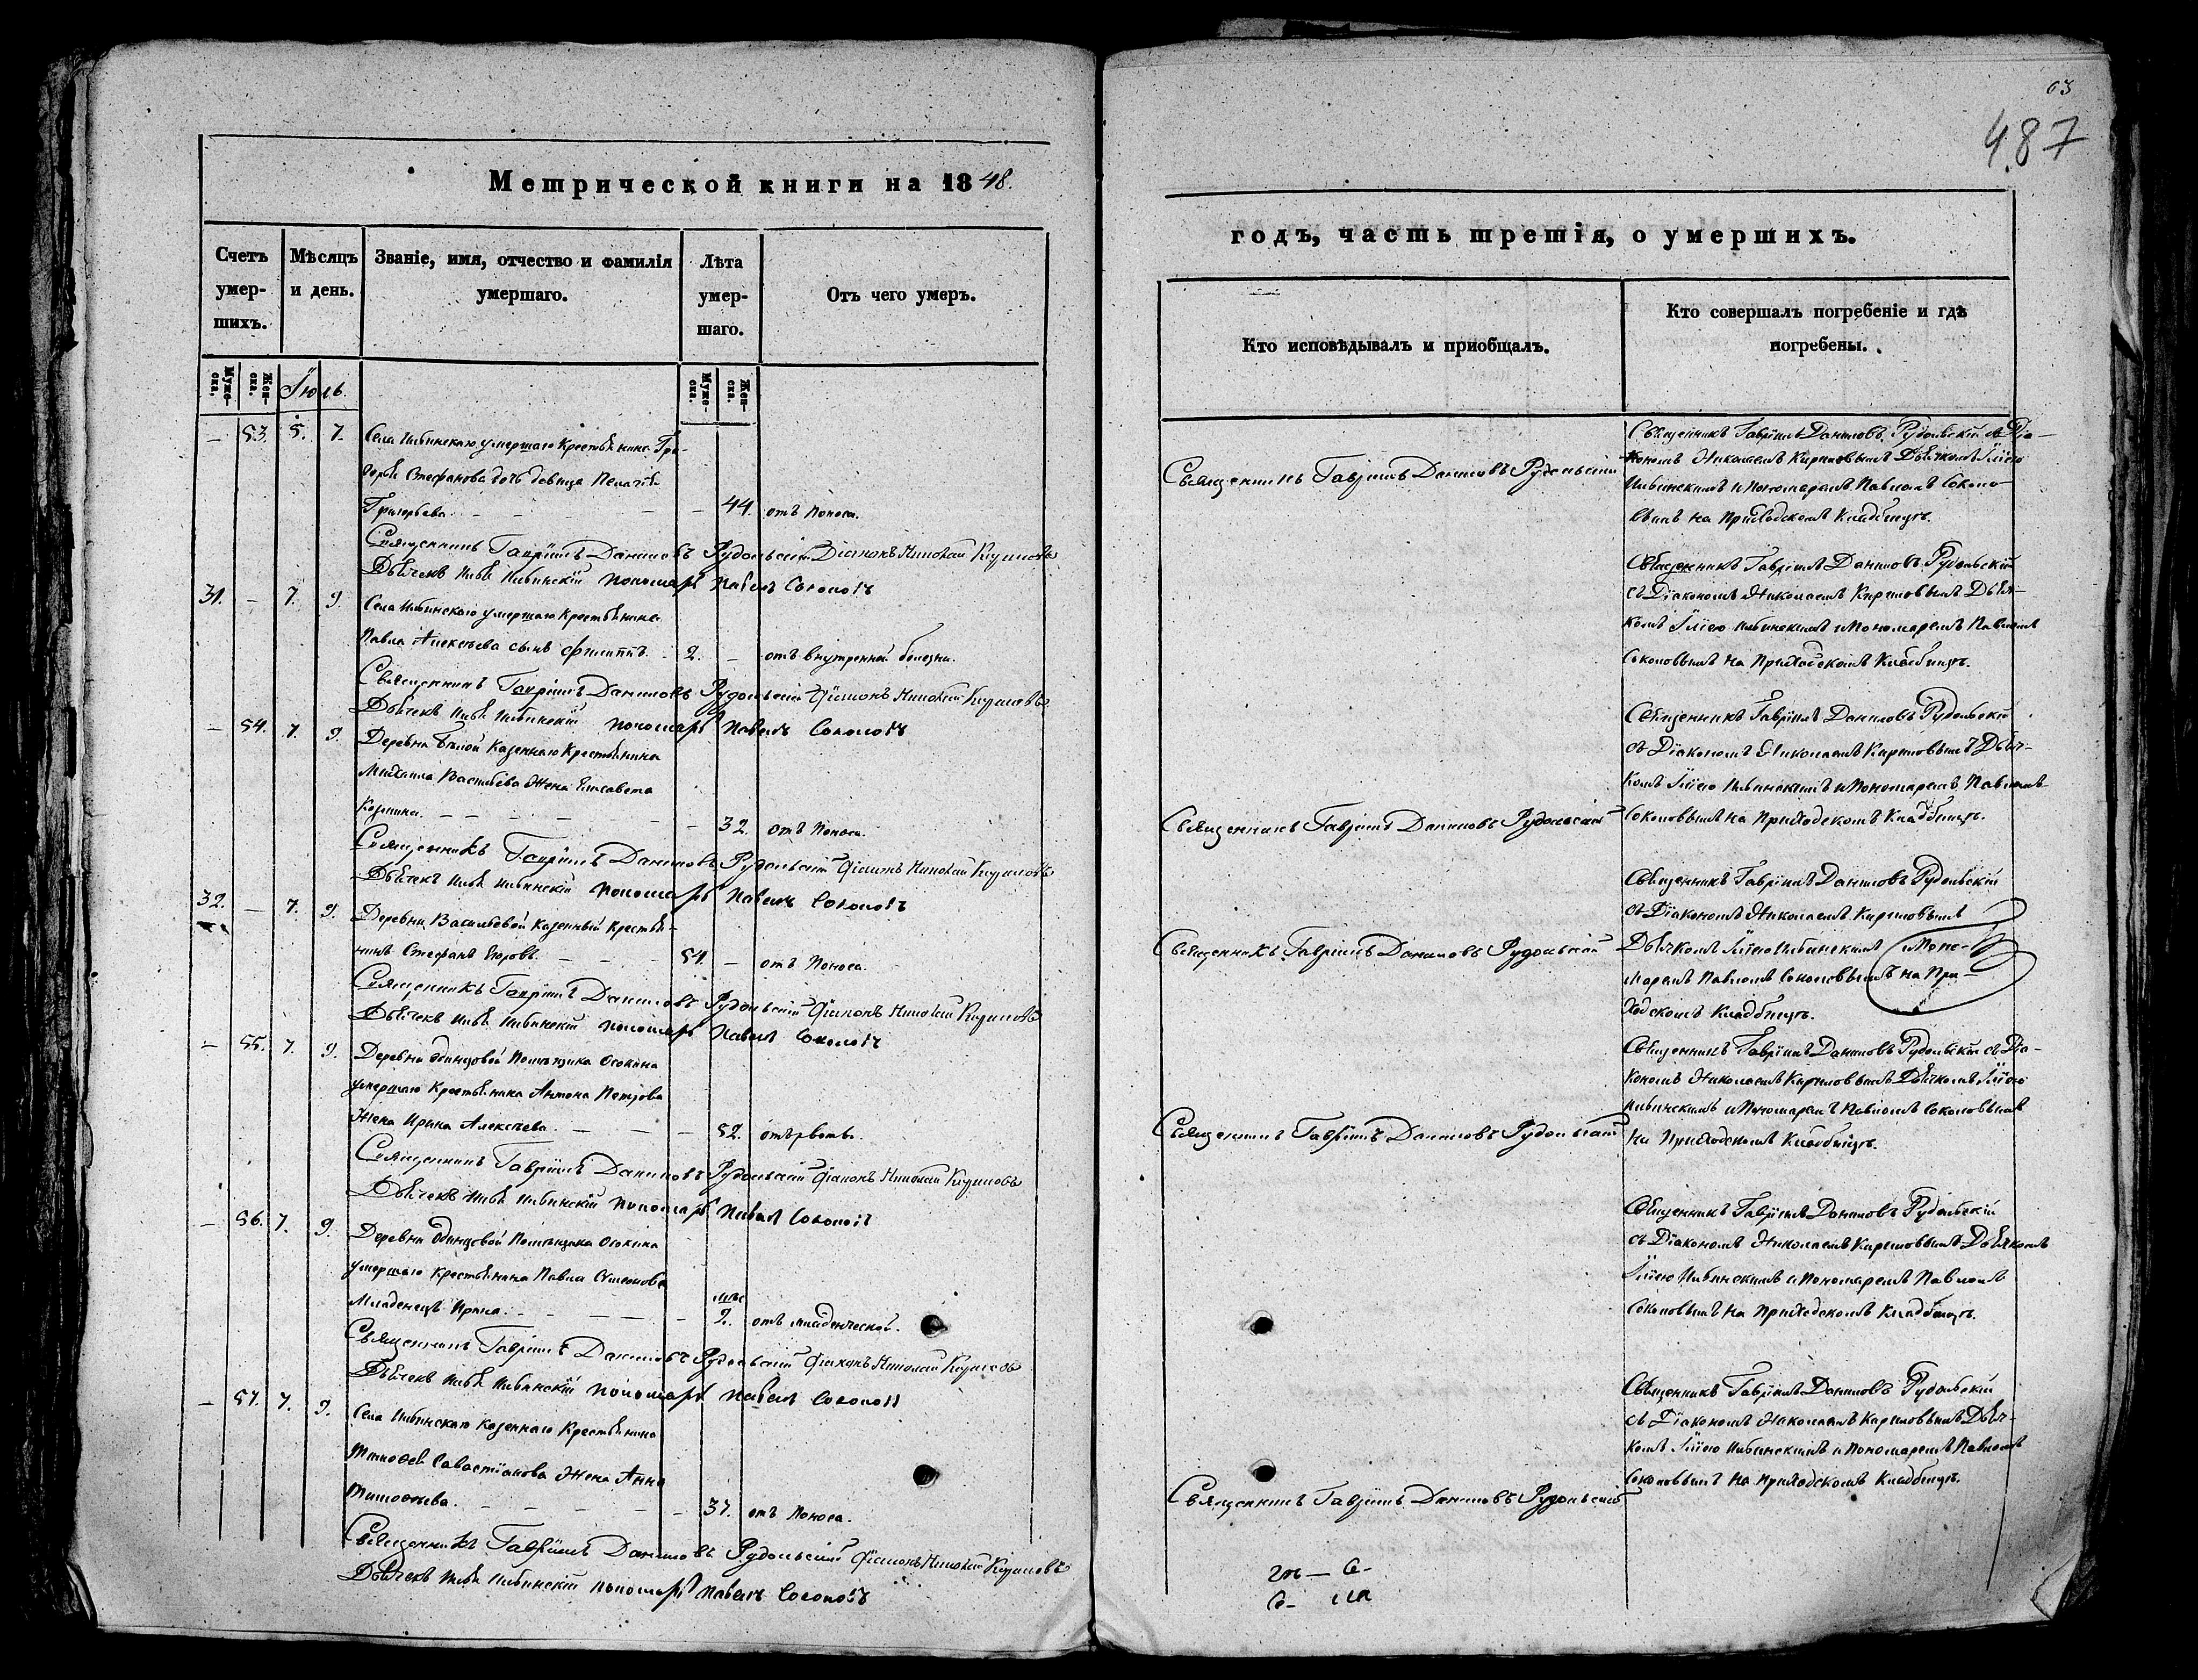 63
487
Метрической книги на 1848.
годъ, часть третія, о умершихъ.
Счетъ умер-шихъ.
Мѣсяцъ и день.
Званіе, имя, отчество и фамилія умершаго.
Лѣта умер-шаго.
Отъ чего умеръ.
Кто исповѣдывалъ и приобщалъ.
Кто совершалъ погребеніе и гдѣ погребены.
Муже-ска.
Жен-ска.
Іюль.
Муже-ска.
Жен-ска.
— 53. 5. 7. Села умершаго Крестьянина Гри-
горья Стефанова дочь девица Пелагія
Григорьева. — 44. отъ поноса.
Священникъ Гавріилъ Даниловъ Рудольскій
Священникъ Гавріилъ Даниловъ Рудольскій съ Діа-
кономъ Николаемъ Кириловымъ Дьячкомъ Іліею
и Пономаремъ Павломъ Соколо-
вымъ на Приходскомъ Кладбищѣ.
Священникъ Гавріилъ Даниловъ Рудольскій Діаконъ Николай Кириловъ
Дьячекъ Илья Пономарь Павелъ Соколовъ
31. — 7. 9. Села умершаго Крестьянина
Павла Алексѣева сынъ Филиппъ. 2. — отъ внутренной болезни.
Священникъ Гавріилъ Даниловъ Рудольскій
съ Діакономъ Николаемъ Кириловымъ Дьяч-
комъ Іліею и Пономаремъ Павломъ
Соколовымъ на Приходскомъ Кладбищѣ.
Священникъ Гавріилъ Даниловъ Рудольскій Діаконъ Николай Кириловъ
Дьячекъ Илья Пономарь Павелъ Соколовъ
— 54. 7. 9. Деревни Белой Казеннаго Крестьянина
Михаила Васильева Жена Елисавета
Козмина. — — — 32. отъ Поноса.
Священникъ Гавріилъ Даниловъ Рудольскій
Священникъ Гавріилъ Даниловъ Рудольскій
съ Діакономъ Николаемъ Кириловымъ Дьяч-
комъ Іліею и Пономаремъ Павломъ
Соколовымъ на Приходскомъ Кладбищѣ.
Священникъ Гавріилъ Даниловъ Рудольскій Діаконъ Николай Кириловъ
Дьячекъ Илья Пономарь Павелъ Соколовъ
32. — 7. 9. Деревни Васильевой Казенный Крестья-
нинъ Стефанъ Егоровъ. — — 54. — отъ Поноса.
Священникъ Гавріилъ Даниловъ Рудольскій
Священникъ Гавріилъ Даниловъ Рудольскій
съ Діакономъ Николаемъ Кириловымъ
Дьячкомъ Іліею и Поно-
маремъ Павломъ Соколовымъ на При-
ходскомъ Кладбищѣ.
Священникъ Гавріилъ Даниловъ Рудольскій Діаконъ Николай Кириловъ
Дьячекъ Илья Пономарь Павелъ Соколовъ
— 55. 7. 9. Деревни Одинцовой Помѣщика Осокина
умершаго Крестьянина Антона Петрова
Жена Ирина Алексѣева. — — — 52. отъ рвоты.
Священникъ Гавріилъ Даниловъ Рудольскій
Священникъ Гавріилъ Даниловъ Рудольскій съ Діа-
кономъ Николаемъ Кириловымъ Дьячкомъ Іліею
и Пономаремъ Павломъ Соколовымъ
на Приходскомъ Кладбищѣ.
Священникъ Гавріилъ Даниловъ Рудольскій Діаконъ Николай Кириловъ
Дьячекъ Илья Пономарь Павелъ Соколовъ
— 56. 7. 9. Деревни Одинцовой Помѣщика Осокина
умершаго Крестьянина Павла Симеонова
Младенецъ Ирина. — — — мѣс 2. отъ младенческой.
Священникъ Гавріилъ Даниловъ Рудольскій
съ Діакономъ Николаемъ Кириловымъ Дьячкомъ
Іліею и Пономаремъ Павломъ
Соколовымъ на Приходскомъ Кладбищѣ.
Священникъ Гавріилъ Даниловъ Рудольскій Діаконъ Николай Кириловъ
Дьячекъ Илья Пономарь Павелъ Соколовъ
— 57. 7. 9. Села Казеннаго Крестьянина
Тимофея Савастіанова Жена Анна
Тимофеева. — — — 37. отъ Поноса.
Священникъ Гавріилъ Даниловъ Рудольскій
Священникъ Гавріилъ Даниловъ Рудольскій
съ Діакономъ Николаемъ Кириловымъ Дьяч-
комъ Іліею и Пономаремъ Павломъ
Соколовымъ на приходскомъ Кладбищѣ.
Священникъ Гавріилъ Даниловъ Рудольскій Діаконъ Николай Кириловъ
Дьячекъ Илья Пономарь Павелъ Соколовъ